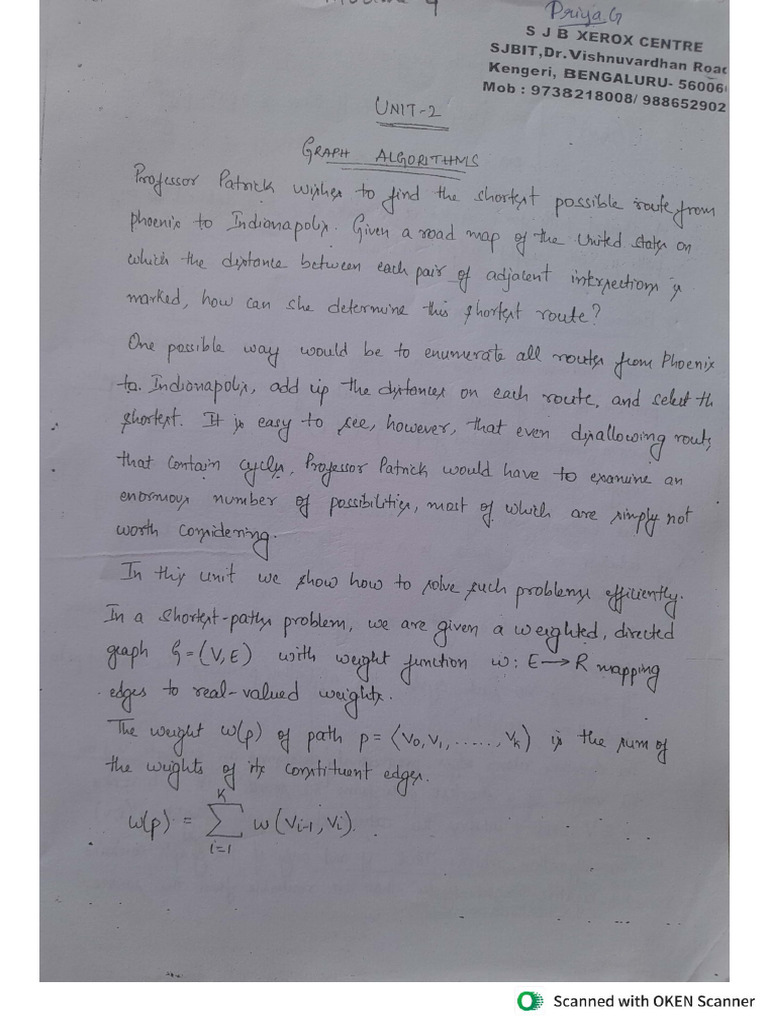 Priya G
S J B XEROX CENTRE
SJBIT, Dr. Vishnuvardhan Road
Kengeri, BENGALURU- 56006
Mob : 9738218008/ 988652902
UNIT-2
GRAPH ALGORITHMS
Professor Patrick wishes to find the shortest possible route from
phoenix to Indianapolis. Given a road map of the United States on
which the distance between each pair of adjacent intersections is
marked, how can she determine this shortest route?
One possible way would be to enumerate all routes from Phoenix
to Indianapolis, add up the distances on each route, and select th
shortest. It is easy to see, however, that even disallowing routes
that contain cycles, Professor Patrick would have to examine an
enormous number of possibilities, most of which are simply not
worth considering.
In this unit we show how to solve such problems efficiently.
In a shortest-paths problem, we are given a weighted, directed
graph G=(V,E) with weight function w: E→R mapping
edges to real-valued weights.
The weight w(p) of path p=⟨v0,v1,......,vk⟩ is the sum of
the weights of its constituent edges.
w(p) = k∑i=1 w(vi-1,vi).
Scanned with OKEN Scanner